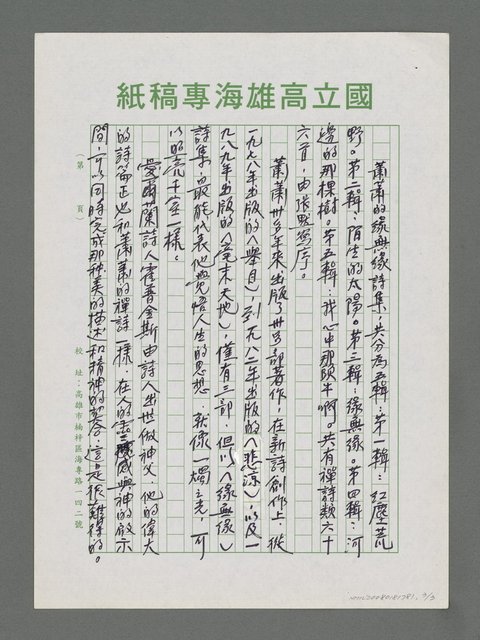 國立高雄海專稿紙
蕭蕭的緣無緣詩集，共分為五輯：第一輯：紅塵荒
野。第二輯：陌生的太陽。第三輯：緣無緣。第四輯：河
邊的那棵樹。第五輯：我心中那頭牛啊。共有禪詩類六十
六首，由張默寫序。
蕭蕭卅多年來出版了卅多部著作，在新詩創作上，從
一九七八年出版的〈舉目〉，到一九八二年出版的〈悲涼〉，以及一
九八九年出版的〈毫末天地〉，僅有三部，但以〈緣無緣〉
詩集，最能代表他覺悟人生的思想，就像一燭之光，可
以照亮千室一樣。
愛爾蘭詩人霍普金斯由詩人出世做神父，他的偉大
的詩篇正也和蕭蕭的禪詩一樣，在人的靈感與神的啟示
間，可以同時完成那種美的描述和精神的契合，這是很難得的。
（第　頁）
校址：高雄市楠梓區海專路一四二號
nmtl20080181781, 3/3